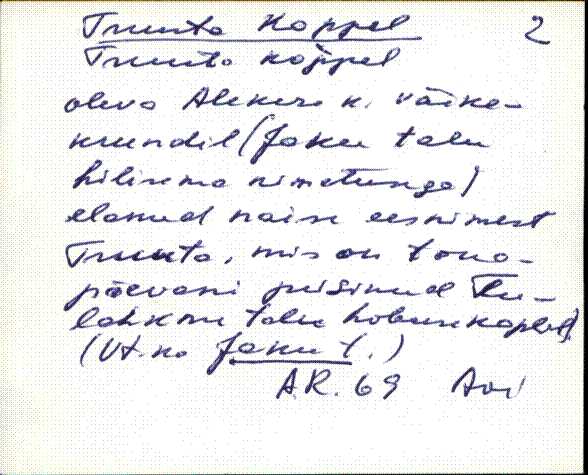 Truuta Koppel 2
Truuta koppel
oleva Alekere k. väike-
krundil (Jaku talu
hilisema nimetusega)
elanud naise eesnimest
Truuta, mis on tona-
päevani püsinud
talu hobusekoplil,
(Vt. ka Jaku t.)
A.R. 69